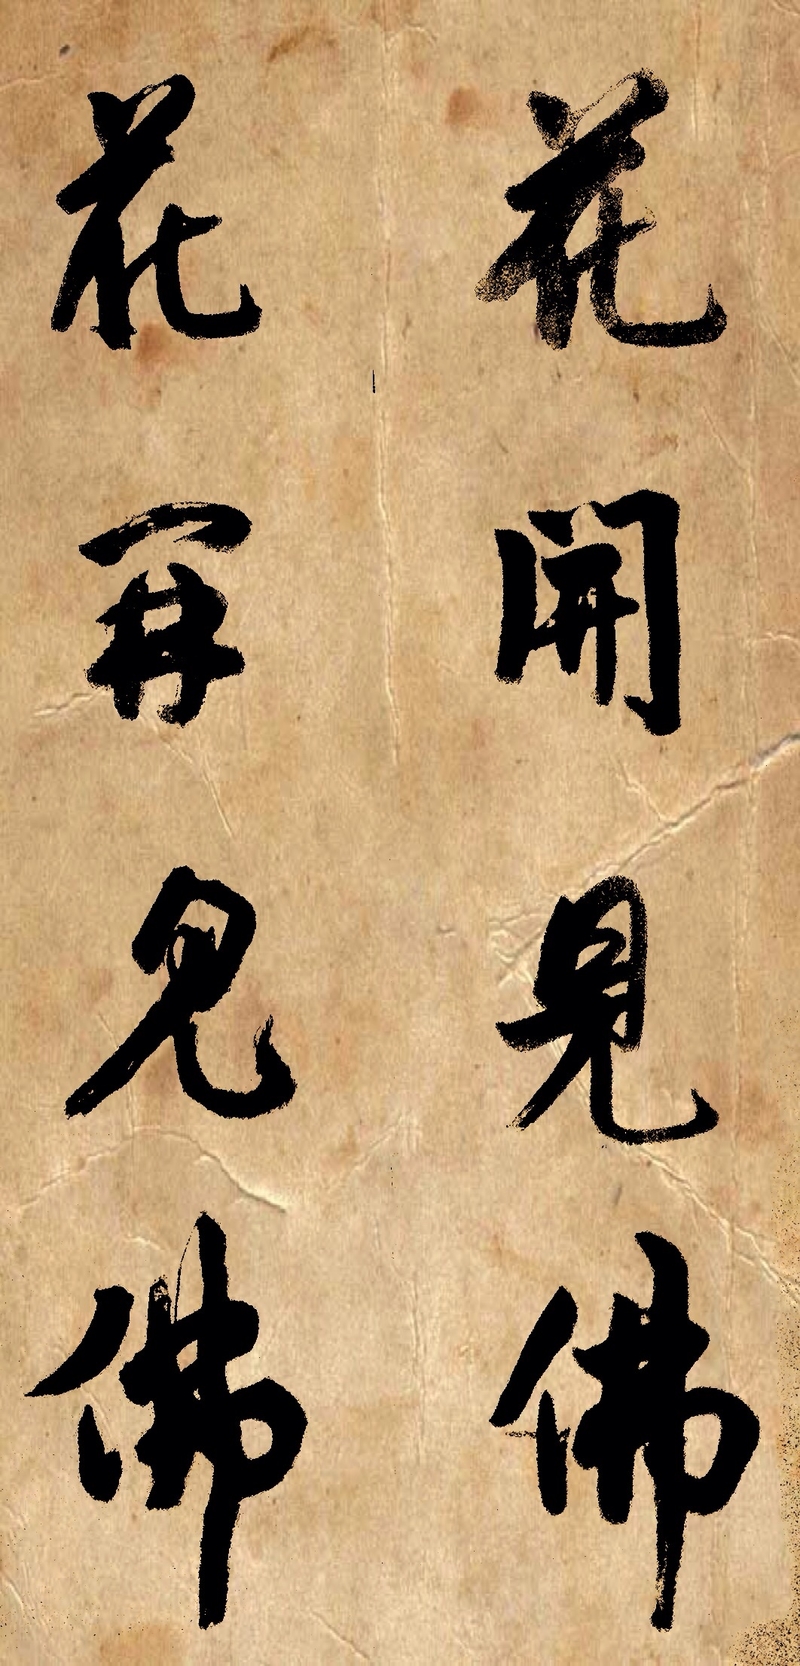 花開見佛
花開見佛